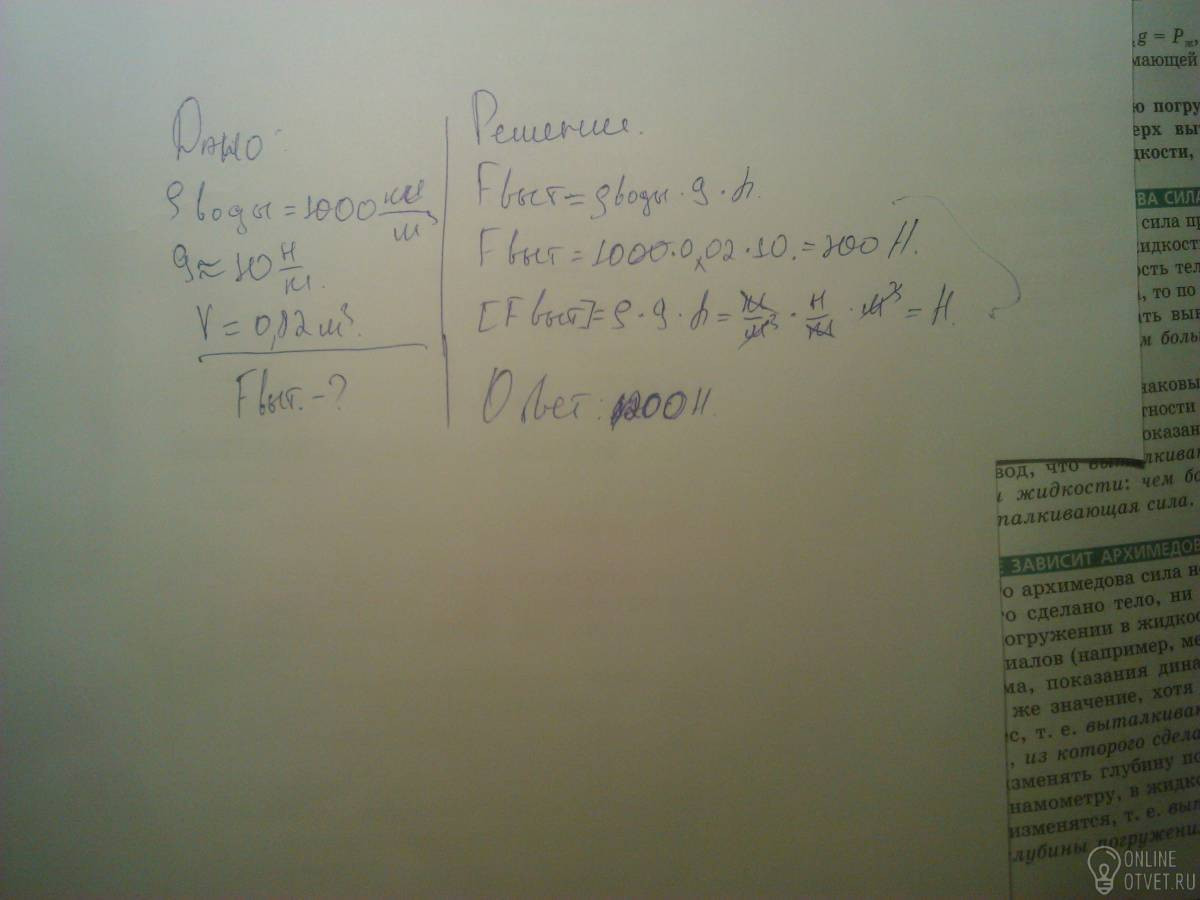 Дано:
ρ воды = 1000 кг/м³
g ≈ 10 Н/кг.
V = 0,02 м³.
Fвыт. - ?
Решение.
Fвыт = ρводы · g · h.
Fвыт = 1000 · 0,02 · 10. = 200 Н.
[Fвыт] = ρ · g · h = кг/м³ · Н/кг · м³ = Н.
Ответ: 200 Н.
g = Pж,
мающей
ю погру
ерх выт
дкости,
ВА СИЛА
сила пр
жидкост
ость тел
, то по
ать выв
м боль
наковы
тности
оказан
вод, что выталкива
и жидкости: чем бо
талкивающая сила.
Е ЗАВИСИТ АРХИМЕДОВ
о архимедова сила н
го сделано тело, ни
огружении в жидкос
иалов (например, ме
ма, показания дина
же значение, хотя
с, т. е. выталкива
, из которого сдела
изменять глубину по
намометру, в жидко
изменятся, т. е. вы
глубины погружени
ONLINE
OTVET.RU